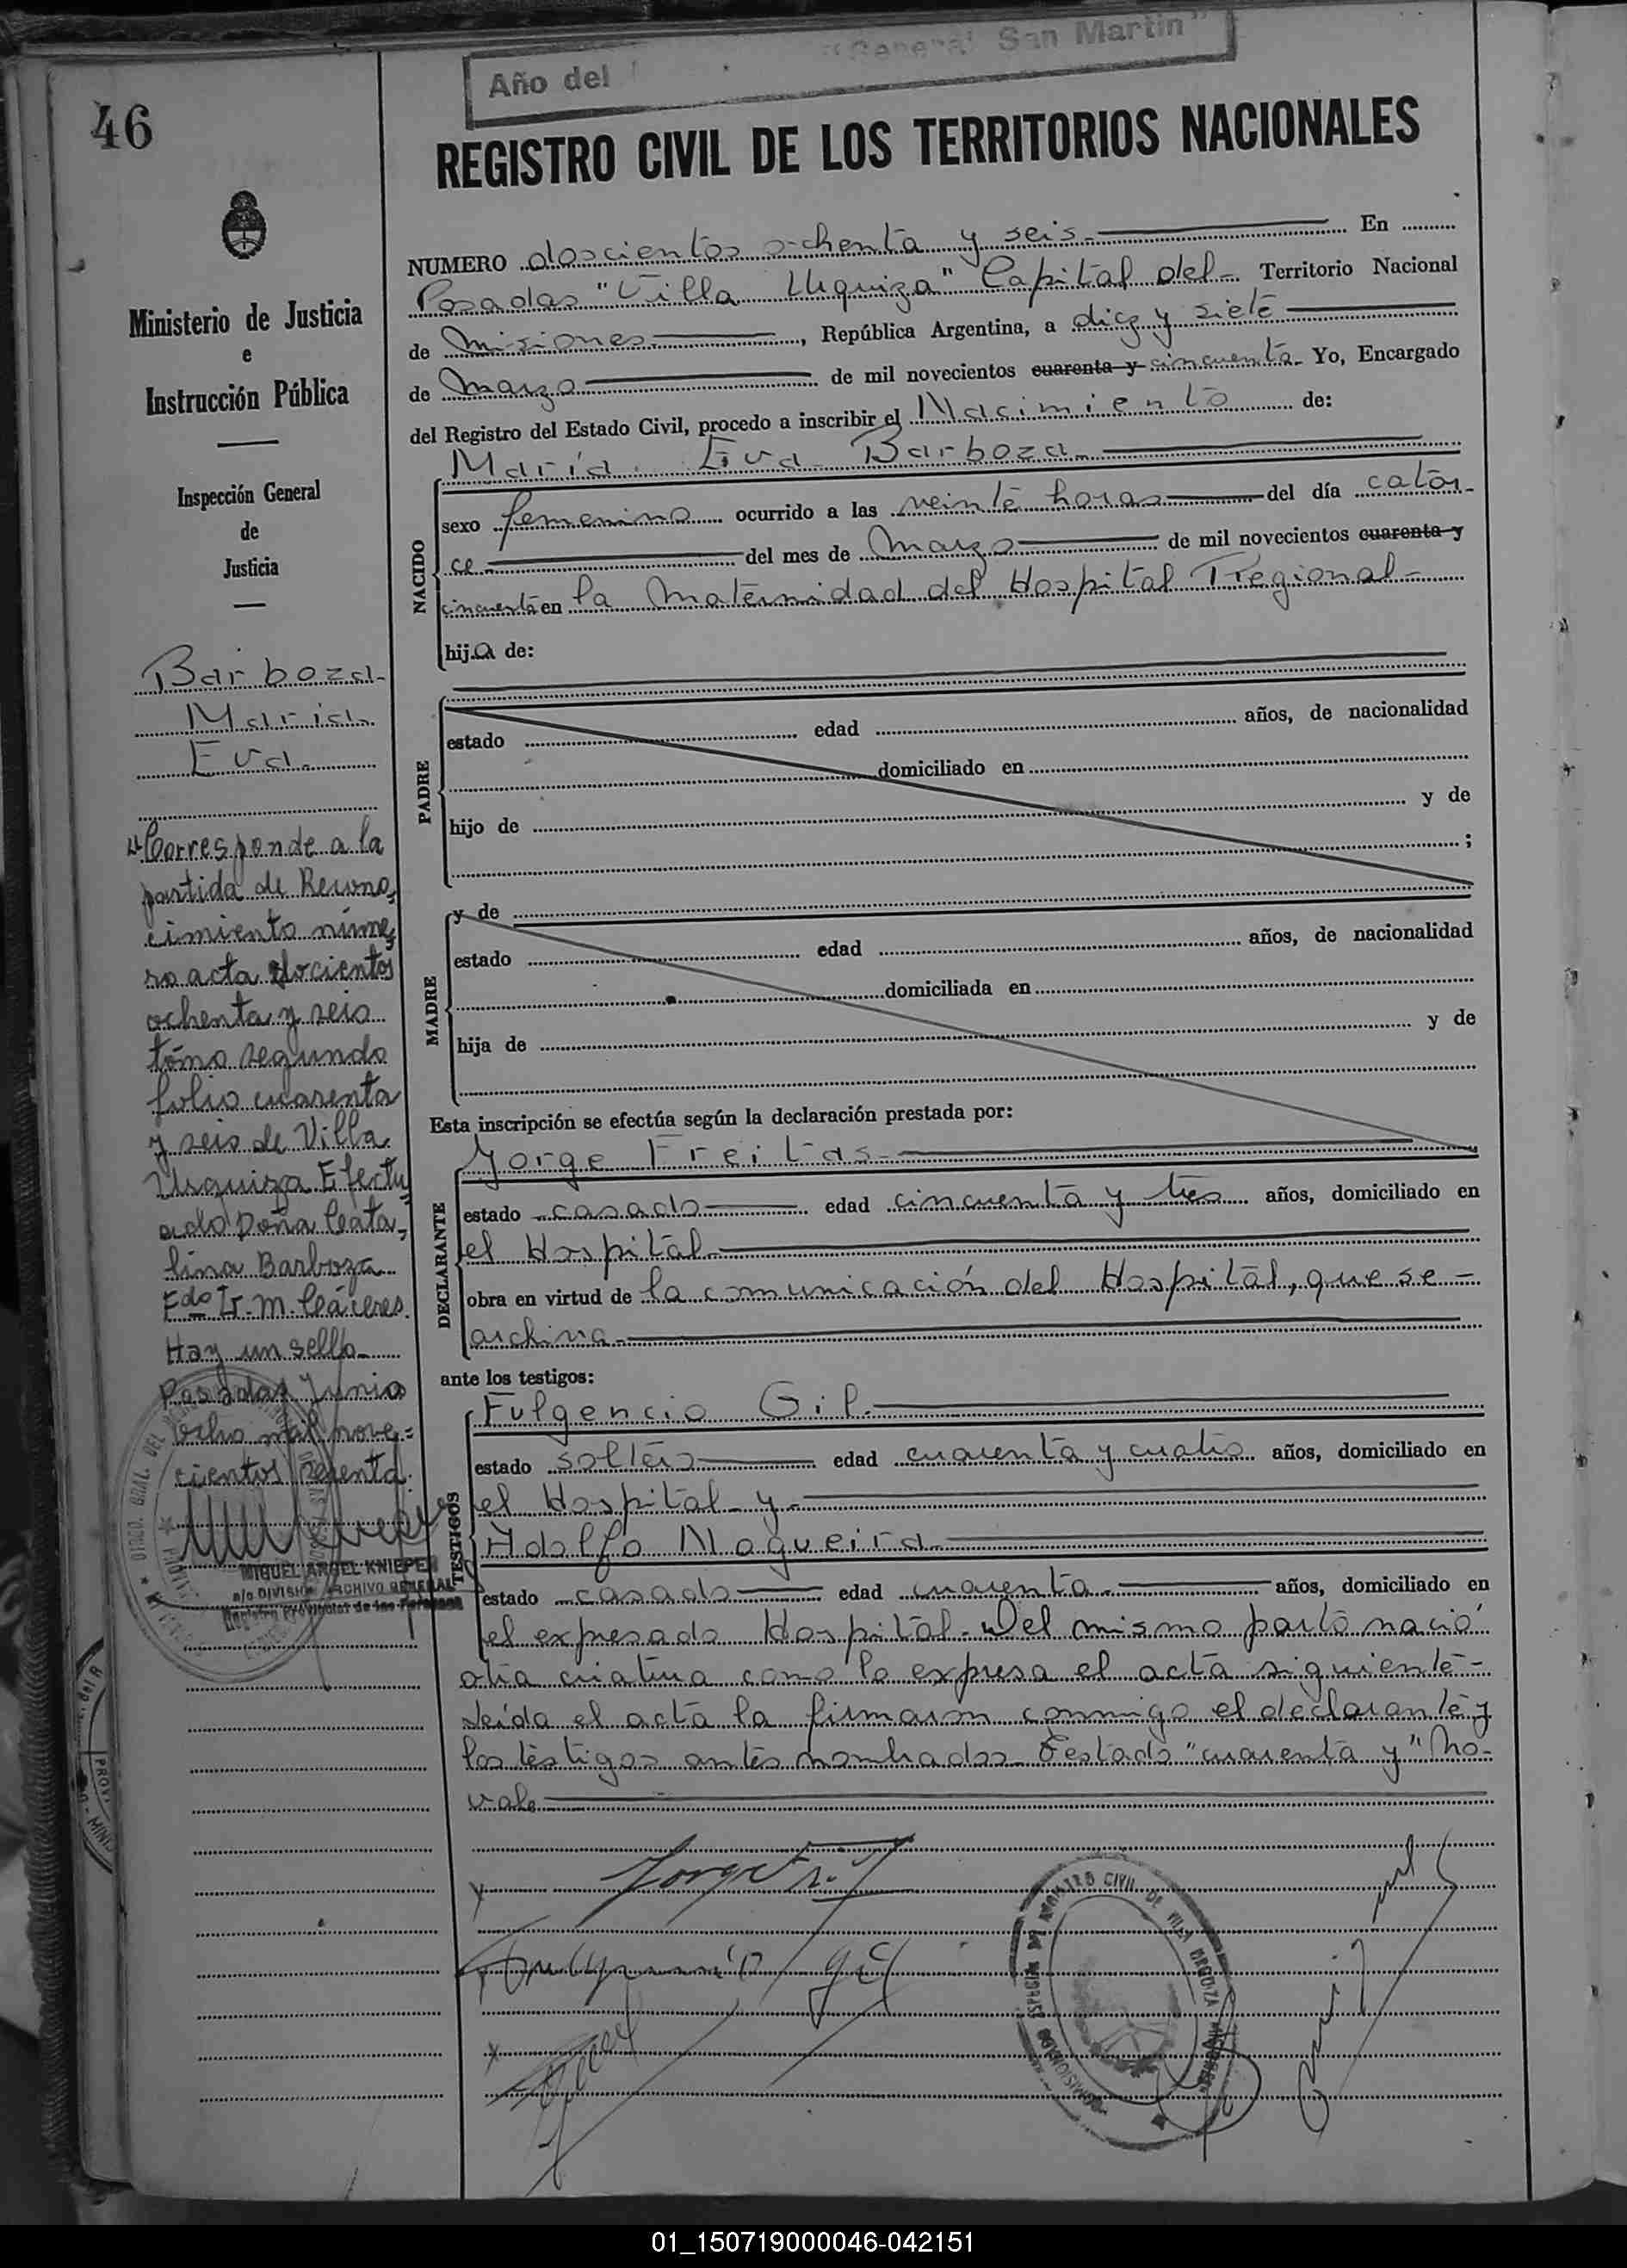 Año del "General San Martin"
46
REGISTRO CIVIL DE LOS TERRITORIOS NACIONALES
Ministerio de Justicia
e
Instrucción Pública
Inspección General
de
Justicia
Barboza
María
Eva.
"Corresponde a la
partida de Recono
cimiento núme
ro acta docientos
ochenta y seis
tómo segundo
folio cuarenta
y seis de Villa
Urquiza Efectu
ado Doña Cata
lina Barboza
Fdo Tr. M. Cáceres.
Hay un sello
Posadas Junio
ocho mil nove=
cientos
MIGUEL ANGEL KNIEPER
a/c DIVISION ARCHIVO GENERAL
Registro Provincial de las Personas
NUMERO doscientos ochenta y seis.- En
Posadas "Villa Urquiza" Capital del- Territorio Nacional
de Misiones, República Argentina, a diez y siete
de Marzo de mil novecientos cuarenta y cincuenta- Yo, Encargado
del Registro del Estado Civil, procedo a inscribir el Nacimiento de:
María Eva Barboza
NACIDO
sexo femenino ocurrido a las veinte horas del día cator-
ce del mes de Marzo de mil novecientos cuarenta y
cincuenta en la Maternidad del Hospital Regional-
hija de:
PADRE
estado edad años, de nacionalidad
domiciliado en
hijo de y de
;
MADRE
y de
estado edad años, de nacionalidad
domiciliada en
hija de y de
Esta inscripción se efectúa según la declaración prestada por:
DECLARANTE
Jorge Freitas-
estado casado edad cincuenta y tres años, domiciliado en
el Hospital-
obra en virtud de la comunicación del Hospital, que se-
archiva-
ante los testigos:
TESTIGOS
Fulgencio Gil.
estado soltero edad cuarenta y cuatro años, domiciliado en
el Hospital y-
Adolfo Nogueira-
estado casado edad cuarenta- años, domiciliado en
el expresado Hospital- Del mismo parto nació
otra criatura como lo expresa el acta siguiente-
Leída el acta la firmaron conmigo el declarante y
los testigos antes nombrados- Testado "cuarenta y" No-
vale
REGISTRO CIVIL DE VILLA URQUIZA MISIONES
01_150719000046-042151